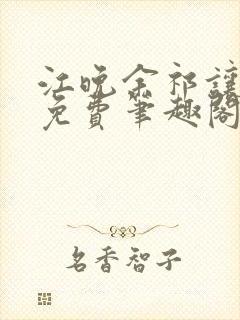 江晚余祁让
免费笔趣阁
名香智子